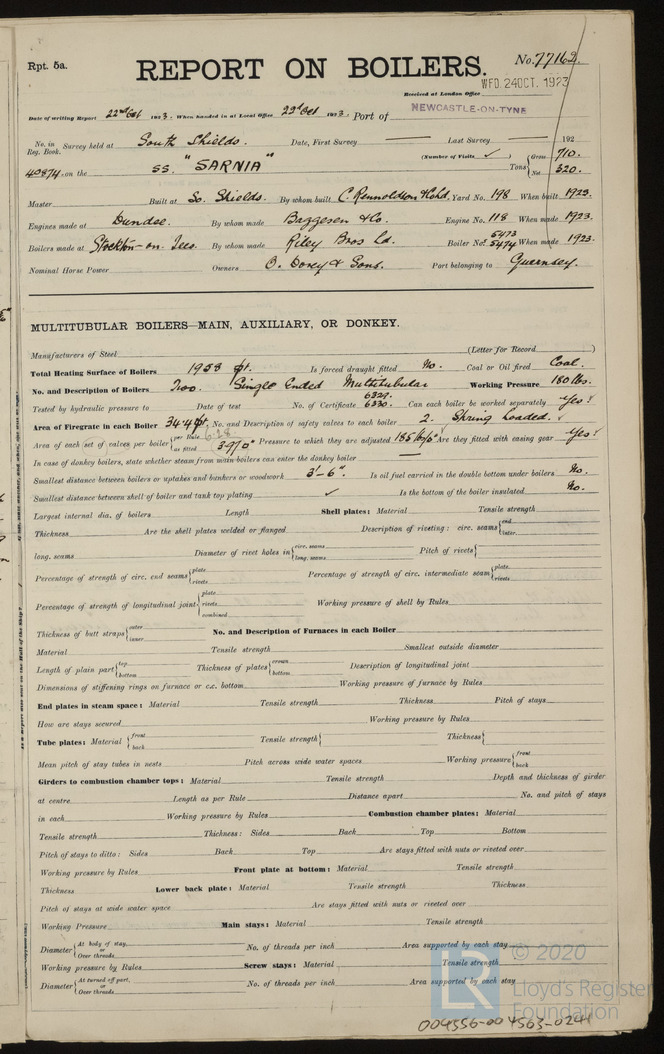 Rpt. 5a.
REPORT ON BOILERS.
No. 77162.
Received at London Office
WED. 24 OCT. 1923
Date of writing Report 22nd Oct 1923. When handed in at Local Office 23rd Oct 1923. Port of NEWCASTLE-ON-TYNE
No. in Reg. Book. Survey held at South Shields. Date, First Survey Last Survey 192
(Number of Visits ✓)
40874 on the SS. "SARNIA" Tons { Gross 710. Net 320.
Master Built at So. Shields. By whom built C. Rennoldson & Co Ld. Yard No. 198 When built 1923.
Engines made at Dundee. By whom made Baggesen & Co. Engine No. 118 When made 1923.
Boilers made at Stockton-on-Tees. By whom made Riley Bros Ld. Boiler No. 5473 5474 When made 1923.
Nominal Horse Power Owners O. Dorey & Sons. Port belonging to Guernsey.
MULTITUBULAR BOILERS—MAIN, AUXILIARY, OR DONKEY.
Manufacturers of Steel (Letter for Record )
Total Heating Surface of Boilers 1958 ft. Is forced draught fitted No. Coal or Oil fired Coal.
No. and Description of Boilers Two. Single Ended Multitubular Working Pressure 180 lbs.
Tested by hydraulic pressure to Date of test No. of Certificate 6329. 6330. Can each boiler be worked separately Yes.
Area of Firegrate in each Boiler 34.4 ft. No. and Description of safety valves to each boiler 2. Spring Loaded.
Area of each set of valves per boiler { per Rule 6.28 as fitted Pressure to which they are adjusted 185 lbs/□" Are they fitted with easing gear Yes
In case of donkey boilers, state whether steam from main boilers can enter the donkey boiler —
Smallest distance between boilers or uptakes and bunkers or woodwork 3'-6". Is oil fuel carried in the double bottom under boilers No.
Smallest distance between shell of boiler and tank top plating ✓ Is the bottom of the boiler insulated No.
Largest internal dia. of boilers Length Shell plates: Material Tensile strength
Thickness Are the shell plates welded or flanged Description of riveting: circ. seams { end inter.
long. seams Diameter of rivet holes in { circ. seams long. seams Pitch of rivets {
Percentage of strength of circ. end seams { plate rivets Percentage of strength of circ. intermediate seam { plate rivets
Percentage of strength of longitudinal joint { plate rivets combined Working pressure of shell by Rules
Thickness of butt straps { outer inner No. and Description of Furnaces in each Boiler
Material Tensile strength Smallest outside diameter
Length of plain part { top bottom Thickness of plates { crown bottom Description of longitudinal joint
Dimensions of stiffening rings on furnace or c.c. bottom Working pressure of furnace by Rules
End plates in steam space: Material Tensile strength Thickness Pitch of stays
How are stays secured Working pressure by Rules
Tube plates: Material { front back Tensile strength { Thickness {
Mean pitch of stay tubes in nests Pitch across wide water spaces Working pressure { front back
Girders to combustion chamber tops: Material Tensile strength Depth and thickness of girder
at centre Length as per Rule Distance apart No. and pitch of stays
in each Working pressure by Rules Combustion chamber plates: Material
Tensile strength Thickness: Sides Back Top Bottom
Pitch of stays to ditto: Sides Back Top Are stays fitted with nuts or riveted over
Working pressure by Rules Front plate at bottom: Material Tensile strength
Thickness Lower back plate: Material Tensile strength Thickness
Pitch of stays at wide water space Are stays fitted with nuts or riveted over
Working Pressure Main stays: Material Tensile strength
Diameter { At body of stay, or Over threads No. of threads per inch Area supported by each stay
Working pressure by Rules Screw stays: Material Tensile strength
Diameter { At turned off part, or Over threads No. of threads per inch Area supported by each stay
© 2020
Lloyd's Register
Foundation
004556-004563-0241